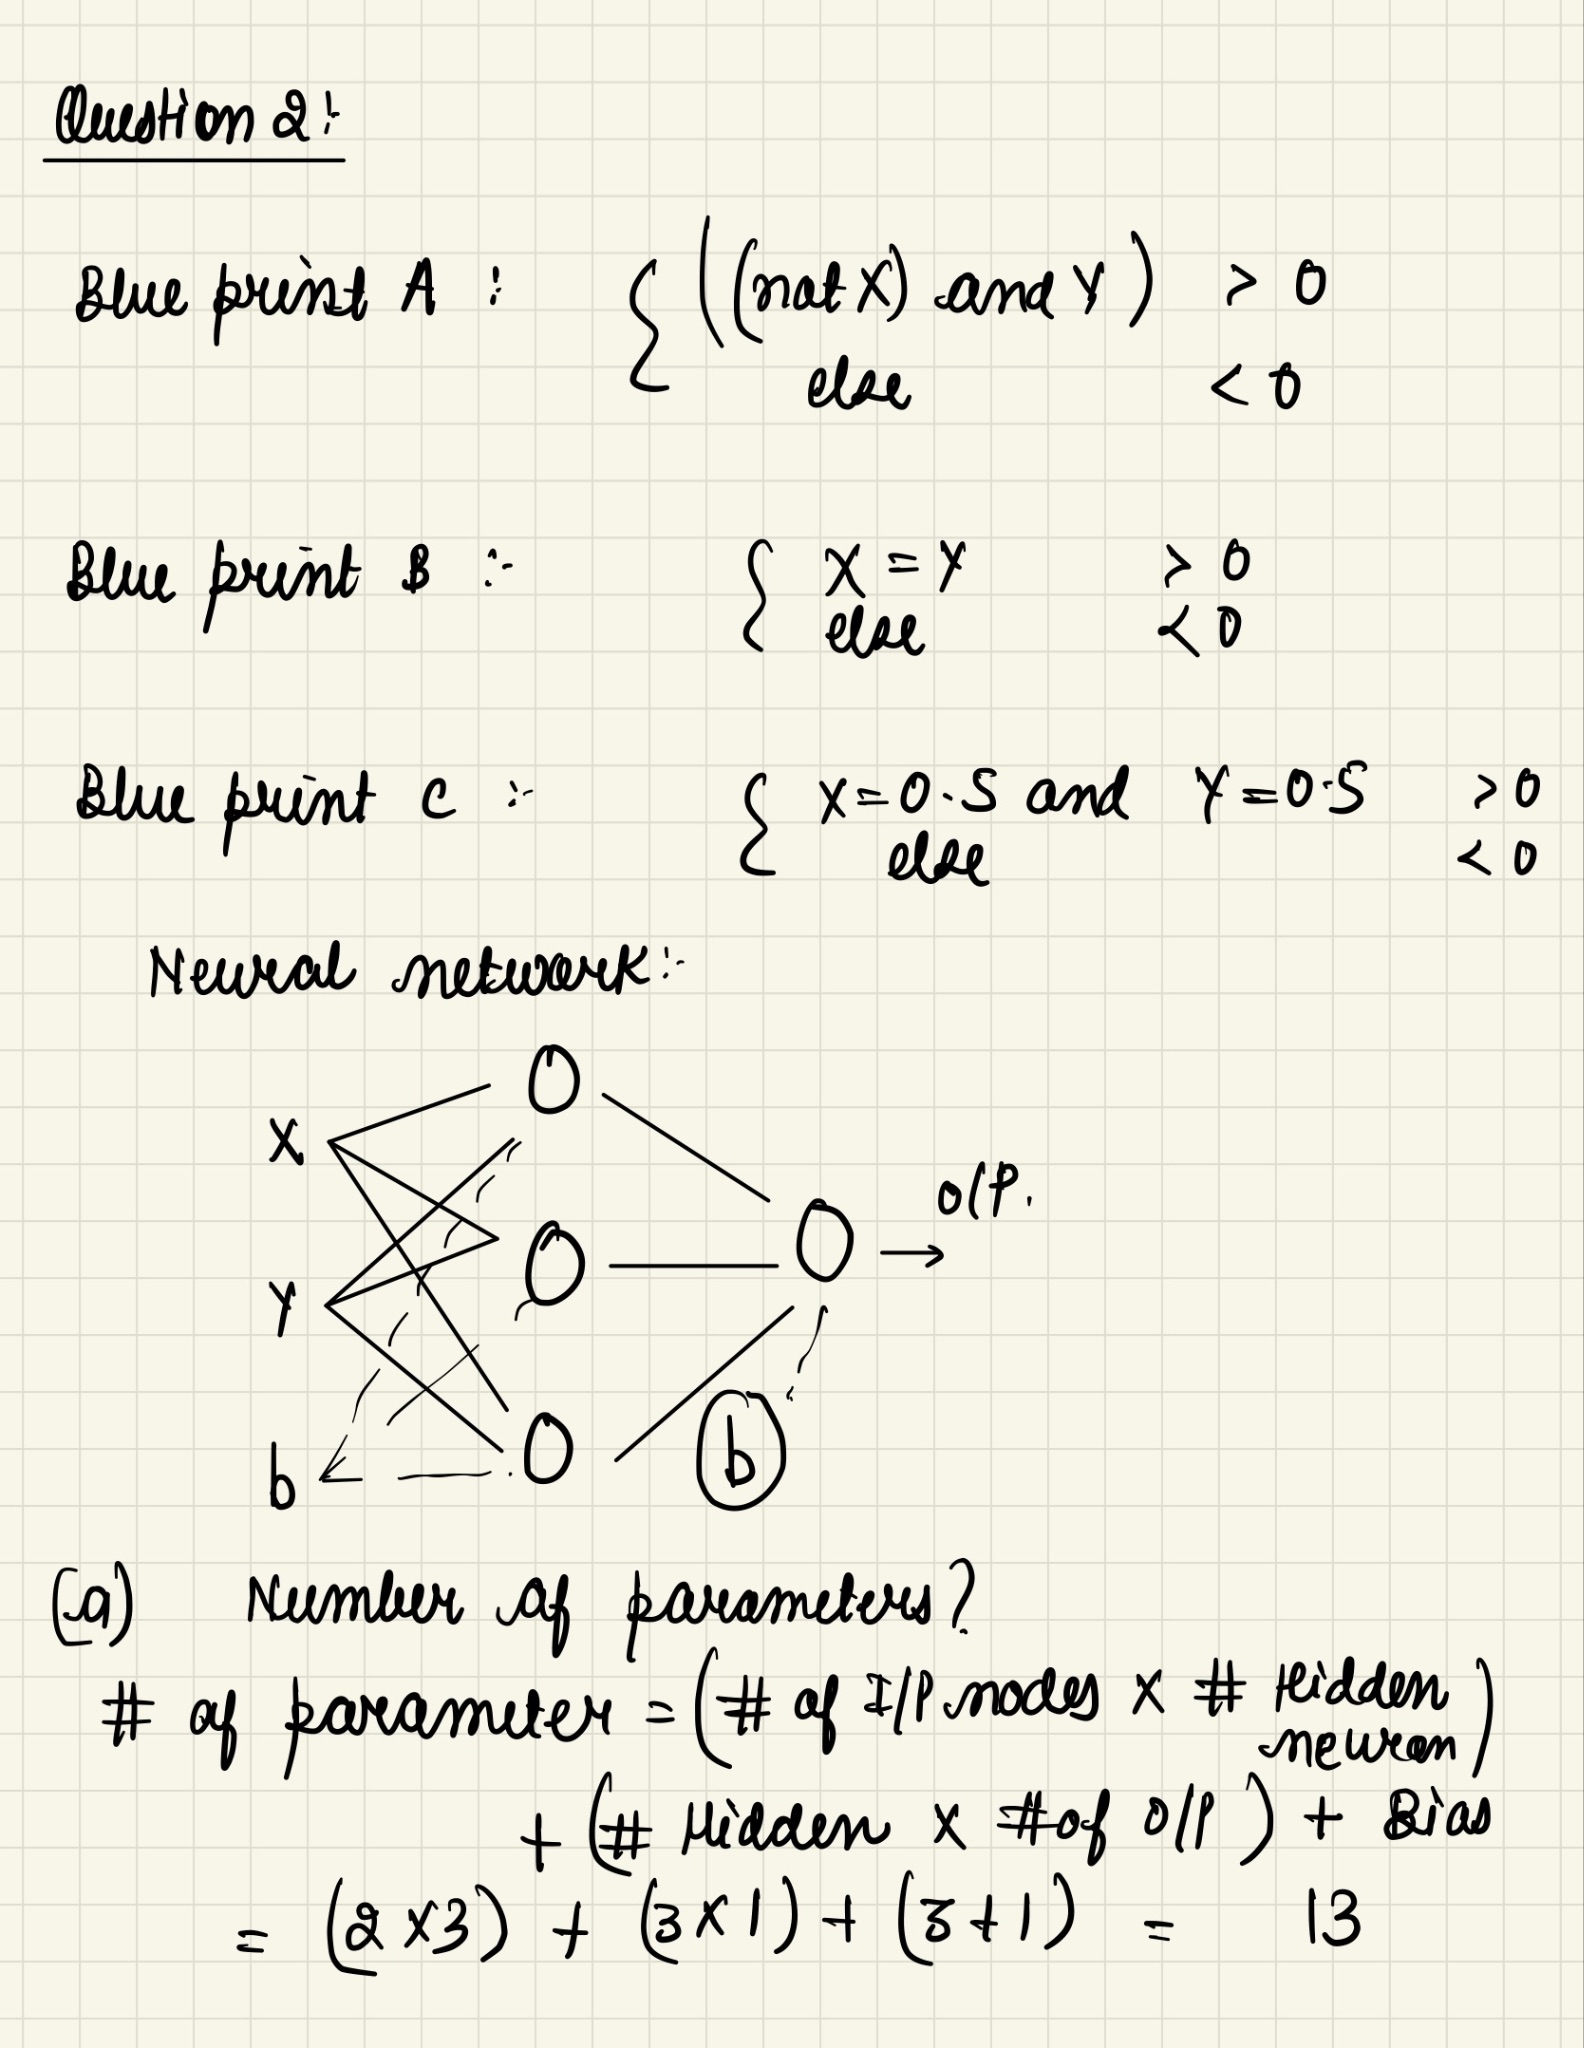 Question 2:-
Blue print A : { ((not X) and Y) > 0
else < 0
Blue print B :- { X = Y > 0
else < 0
Blue print C :- { X = 0.5 and Y = 0.5 > 0
else < 0
Neural network:-
X
Y
b
b
O/P.
(a) Number of parameters?
# of parameter = (# of I/P nodes X # Hidden
neuron)
+ (# Hidden X # of O/P) + Bias
= (2 X 3) + (3 X 1) + (3 + 1) = 13